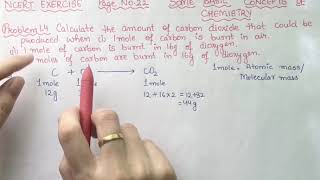 NCERT EXERCISE Page No:22 SOME BASIC CONCEPTS OF
CHEMISTRY
Problem 1.4 Calculate the amount of carbon dioxide that could be
produced when (i) 1 mole of carbon is burnt in air.
(ii) 1 mole of carbon is burnt in 16g of dioxygen.
moles of carbon are burnt in 16g of dioxygen.
C + CO2 1 mole = Atomic mass/
1 mole 1 1 mole Molecular mass
12g 12+16×2 = 12+32
=44g